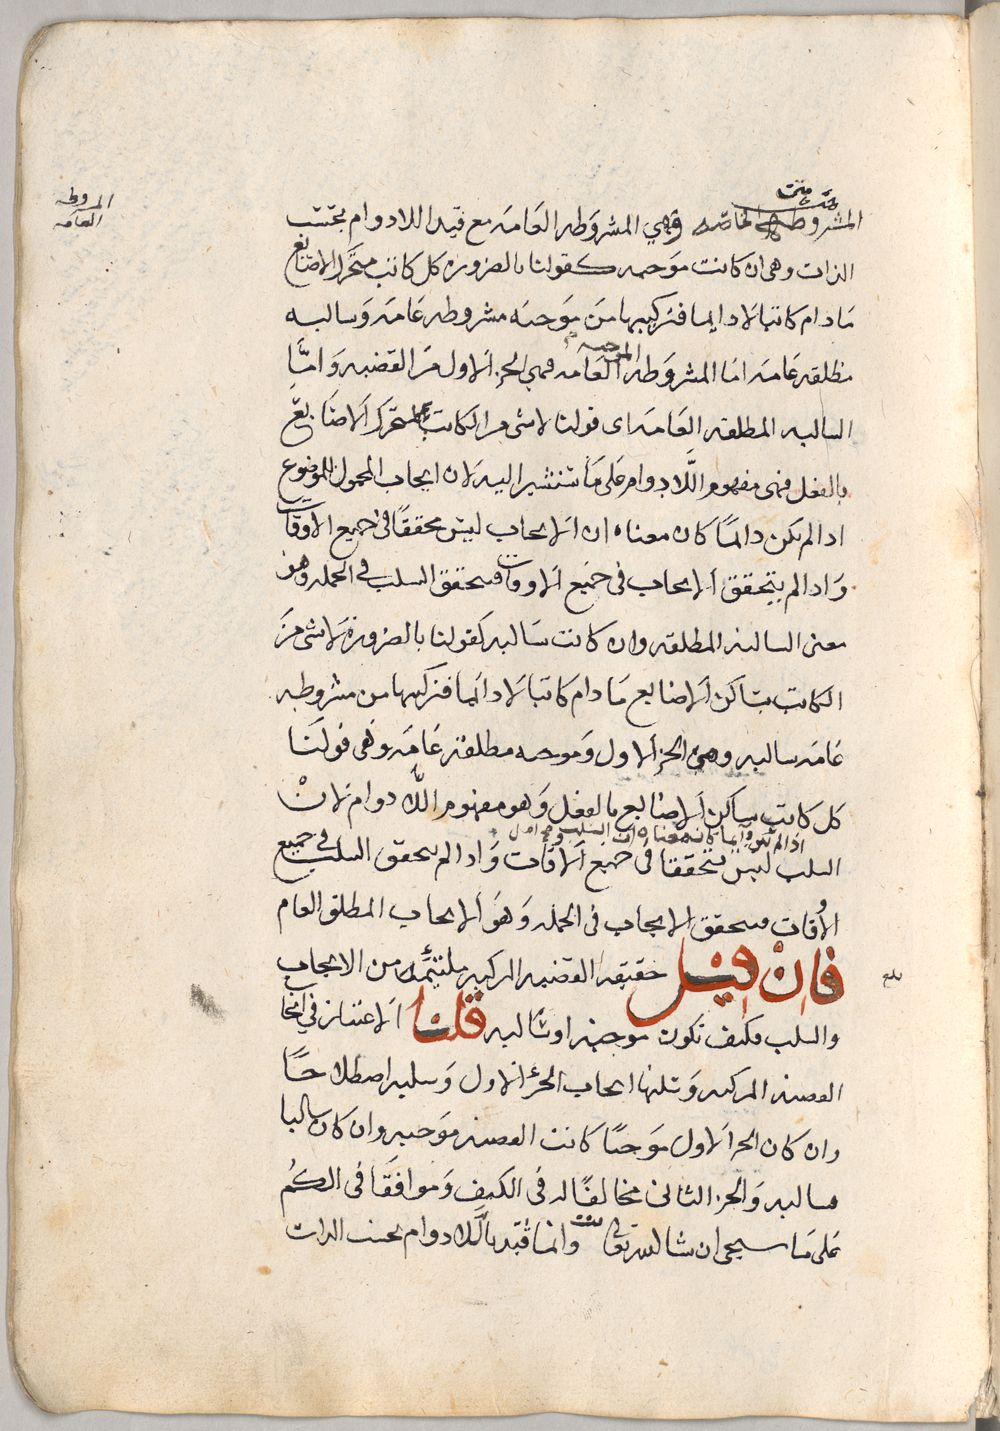 المشروطه الخاصه وهي المشروطه العامه مع قيد اللادوام بحسب
الذات وهي ان كانت موجبه كقولنا بالضروره كل كاتب متحرك الاصابع
ما دام كاتبا لا دايما فتركيبها من موجبه مشروطه عامه وسالبه
مطلقه عامه اما المشروطه الموجبه العامه فهي الجزء الاول من القضيه واما
السالبه المطلقه العامه اى قولنا لا شى من الكاتب بمتحرك الاصابع
بالفعل فهى مفهوم اللادوام على ما سنشير اليه لان ايجاب المحمول للموضوع
اذا لم يكن دائمًا كان معناه ان الايجاب ليس محققًا فى جميع الاوقات
واذا لم يتحقق الايجاب فى جميع الاوقات فيتحقق السلب فى الجمله وهو
معنى السالبه المطلقه وان كانت سالبه كقولنا بالضروره لا شى من
الكاتب بساكن الاصابع ما دام كاتبا لا دائما فتركيبها من مشروطه
عامه سالبه وهى الجزء الاول وموجبه مطلقه عامه وهى قولنا
كل كاتب ساكن الاصابع بالفعل وهو مفهوم اللادوام لان
السلب اذا لم يكن دايما كان معناه ان السلب
ليس متحققا فى جميع الاوقات واذا لم يتحقق السلب فى جميع
الاوقات فيتحقق الايجاب فى الجمله وهو الايجاب المطلق العام
فان قيل حقيقه القضيه المركبه ملتئمه من الايجاب
والسلب فكيف تكون موجبه او سالبه قلنا الاعتبار فى ايجاب
القضيه المركبه وسلبها ايجاب الجزء الاول وسلبه اصطلاحًا
وان كان الجزء الاول موجبًا كانت القضيه موجبه وان كان سالبا
سالبه والجزء الثانى مخالفًا له فى الكيف وموافقًا فى الكم
على ما سيجى ان شا الله تعالى وانما قيد باللادوام بحسب الذات
المشروطه
العامه
بلغ